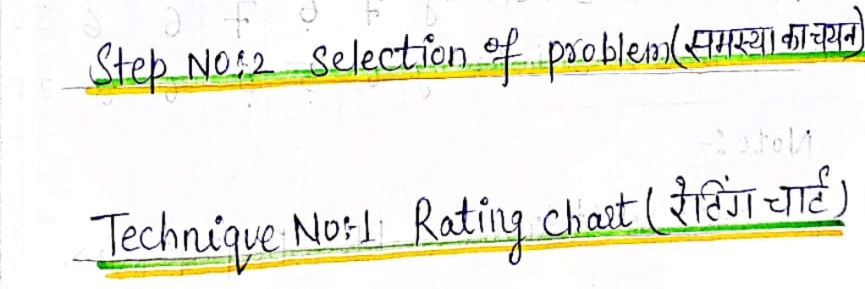 Step No:2 Selection of problem(समस्या का चयन)
Technique No:1 Rating chart (रैटिंग चार्ट)